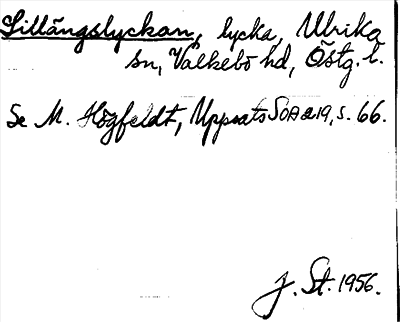 Lillängslyckan, lycka, Ulrika
sn, Valkebo hd, Östg. l.
Se M. Högfeldt, Uppsats SOA a 19, s. 66.
J. St. 1956.